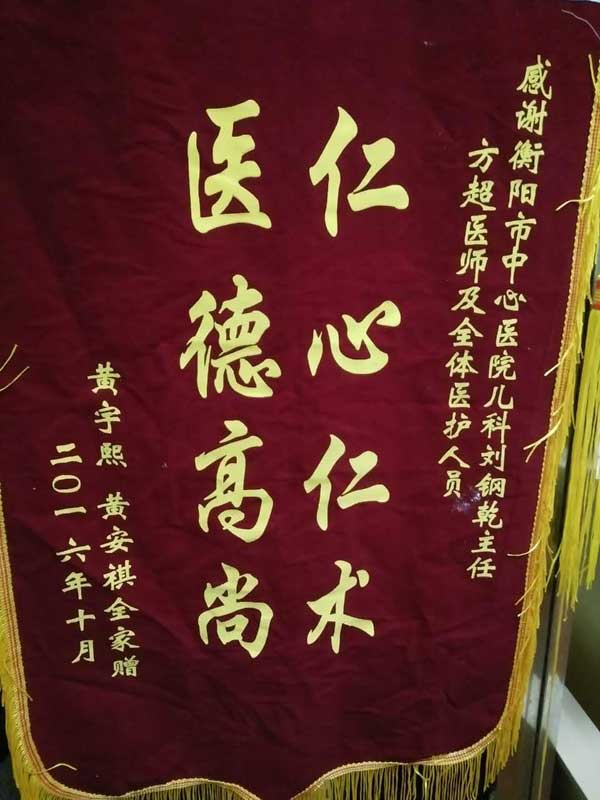 感谢衡阳市中心医院儿科刘钢乾主任
方超医师及全体医护人员
仁心仁术
医德高尚
黄宇熙 黄安祺全家赠
二〇一六年十月